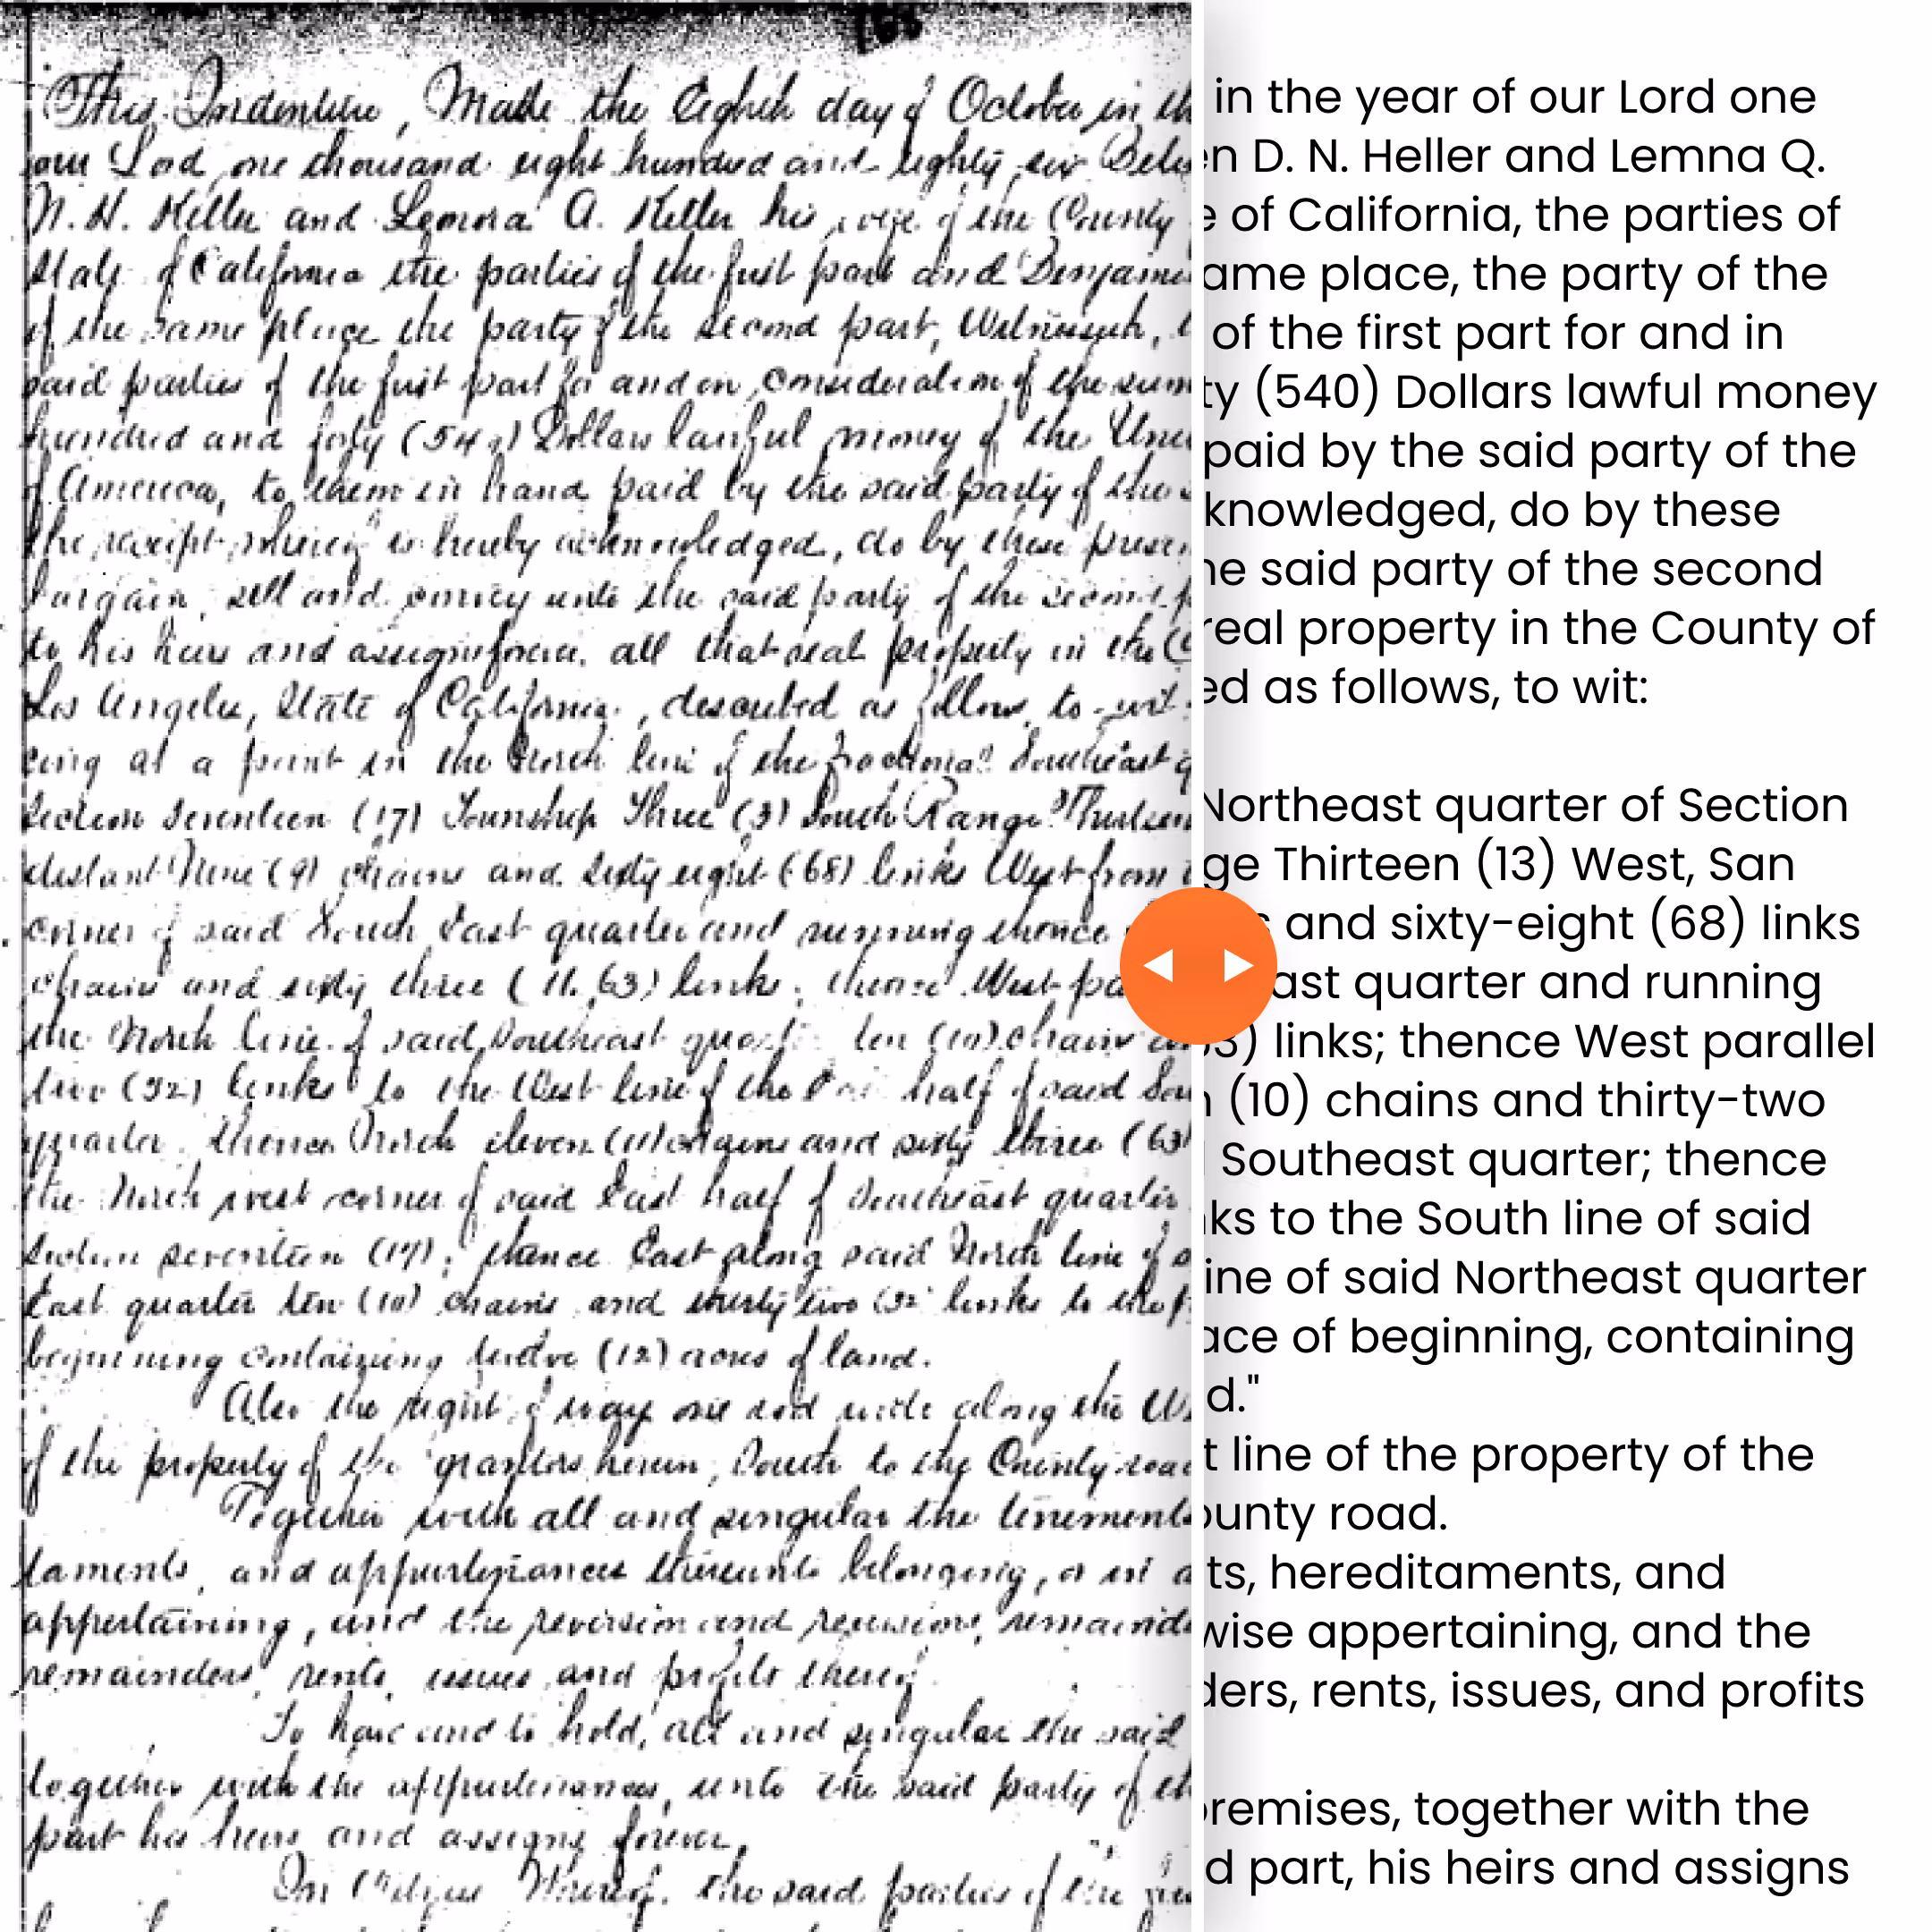 This Indenture, Made the Eighth day of October in th
our Lord one thousand eight hundred and eighty six Betw
N. H. Keller and Lenora A. Keller his wife of the County
State of California the parties of the first part and Benjamin
of the same place the party of the second part, Witnesseth,
said parties of the first part for and in consideration of the sum
hundred and forty (540) Dollars lawful money of the Uni
of America, to them in hand paid by the said party of the
the receipt whereof is hereby acknowledged, do by these presen
bargain, sell and convey unto the said party of the second p
to his heirs and assigns forever, all that real property in the C
Los Angeles, State of California, described as follows, to-wit
cing at a point in the North line of the fractional Southeast q
Section Seventeen (17) Township Three (3) South Range Thirteen
distant Nine (9) chains and sixty eight (68) links West from
corner of said South East quarter and running thence
chains and sixty three (11.63) links; thence West pa
the North line of said Southeast quart ten (10) chains a
two (32) links to the West line of the half of said Sou
quarter, thence North eleven (11) chains and sixty three (63)
the North west corner of said East half of Southeast quarter
Section seventeen (17); thence East along said North line of s
East quarter ten (10) chains and thirty two (32) links to the p
beginning containing twelve (12) acres of land.
Also the right of way one rod wide along the W
of the property of the grantors herein, South to the County road
Together with all and singular the tenements
taments, and appurtenances thereunto belonging, or in a
appertaining, and the reversion and reversions, remainde
remainders, rents, issues and profits thereof
To have and to hold, all and singular the said
together with the appurtenances, unto the said party of th
part his heirs and assigns forever.
In Witness Whereof, the said parties of the firs
in the year of our Lord one
en D. N. Heller and Lemna Q.
e of California, the parties of
ame place, the party of the
of the first part for and in
ty (540) Dollars lawful money
paid by the said party of the
knowledged, do by these
he said party of the second
real property in the County of
ed as follows, to wit:
Northeast quarter of Section
ge Thirteen (13) West, San
s and sixty-eight (68) links
ast quarter and running
3) links; thence West parallel
n (10) chains and thirty-two
Southeast quarter; thence
nks to the South line of said
ine of said Northeast quarter
ace of beginning, containing
d."
t line of the property of the
ounty road.
ts, hereditaments, and
wise appertaining, and the
ders, rents, issues, and profits
premises, together with the
d part, his heirs and assigns